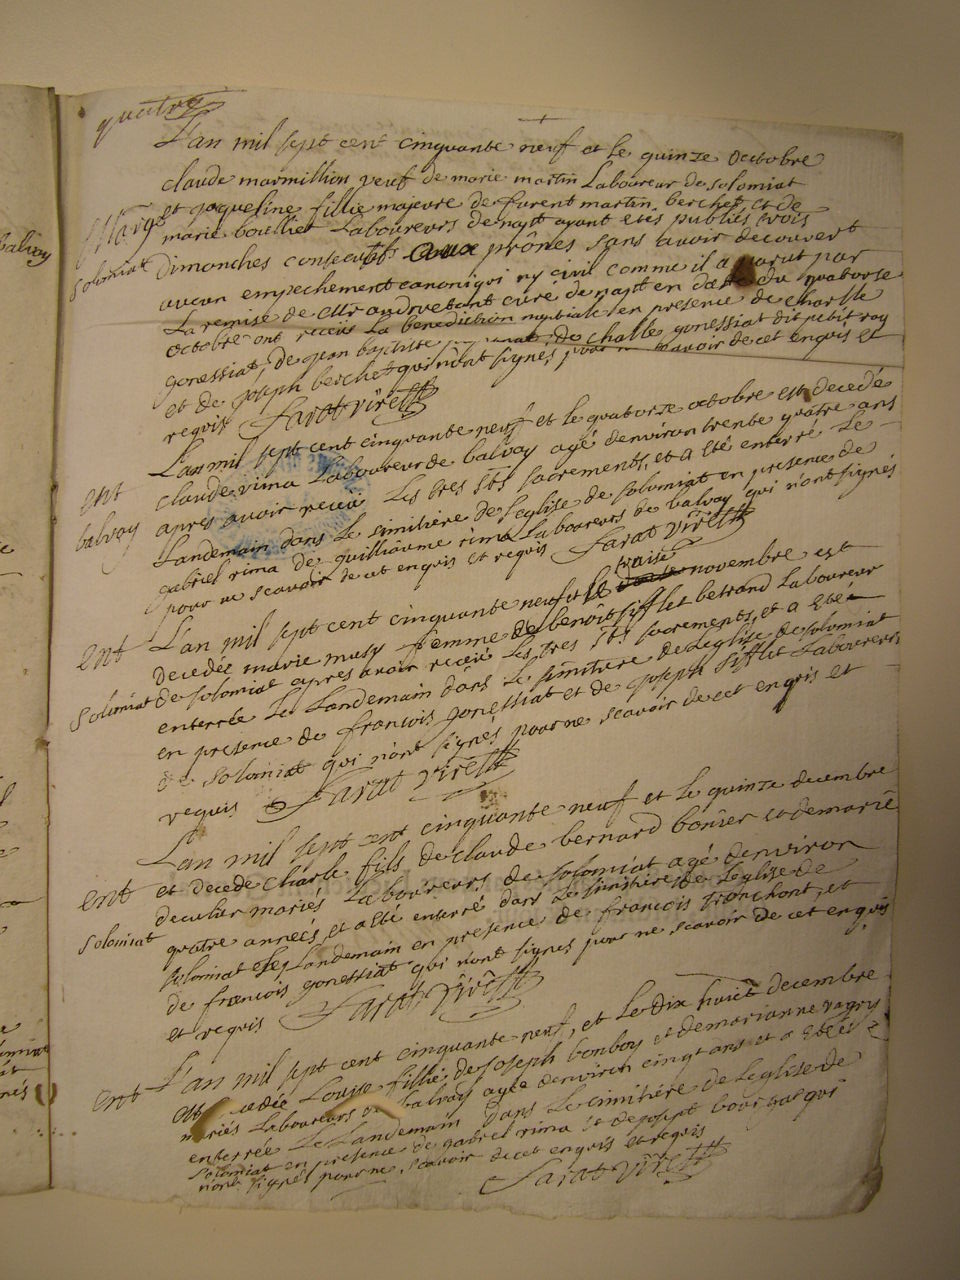 quatre
L'an mil sept cent cinquante neuf et le quinze octobre
claude marmillion veuf de marie martin Laboureur de solomiat
et jaqueline fillie majeure de furent martin berchet et de
Marge
marie boulliet Laboureurs de napt ayant etés publiés trois
solomiat
Dimonches consecutifs aux prônes sans avoir decouvert
aucun empechement canonique ny civil comme il a parut par
La remise de curé de napt en datte du quatorse
octobre ont receus La benediction nuptiale en presence de Charle
gonessiat, de jean baptiste de challe gonessiat dit petit ray
et de joseph berchet qui n'ont signes, pour ne scavoir de cet enquis et
requis Farat viret
L'an mil sept cent cinquante neuf et le quatorze octobre est decedé
ent
claude rima Laboureur de balvay agé denviron trente quatre ans
balvay
apres avoir recéu Les tres sts sacrements, et a eté enterré Le
Landemain dans Le simitière de L'eglise de solomiat en presence de
gabriel rima de guilliaume rima Laboureurs de balvay qui n'ont signés
pour ne scavoir de cet enquis et requis Farat viret
treise
L'an mil sept cent cinquante neuf et le novembre est
ent
Decedée marie musy femme de benoit sifflet betrand Laboureur
solomiat
de solomiat apres avoir recéu Les tres sts sacrements, et a eté
enterrée Le Landemain dans Le simitière de L'eglise de solomiat
en presence de francois gonessiat et de joseph sifflet Laboureurs
de solomiat qui n'ont signés pour ne scavoir de cet enquis et
requis Farat viret
L'an mil sept cent cinquante neuf et le quinze decembre
ent
et decede charle fils de claude bernard bonier et de marie
deculier mariés Laboureurs de solomiat agé denviron
solomiat
quatre années, et a eté enterré dans Le simitière de L'eglise de
solomiat Le Landemain en presence de francois tronchont, et
de francois gonessiat qui n'ont signes pour ne scavoir de cet enquis
et requis Farat viret
L'an mil sept cent cinquante neuf, et Le dix huict decembre
ent
Louise fillie de joseph bonboy et de marianne ragry
mariés Laboureurs de balvay agée denviron cinq ans et a eteé
enterrée Le Landemain dans Le cimitière de L'eglise de
solomiat en presence de gabriel rima et de joseph bourgat qui
n'ont signés pour ne scavoir de cet enquis et requis
Farat viret